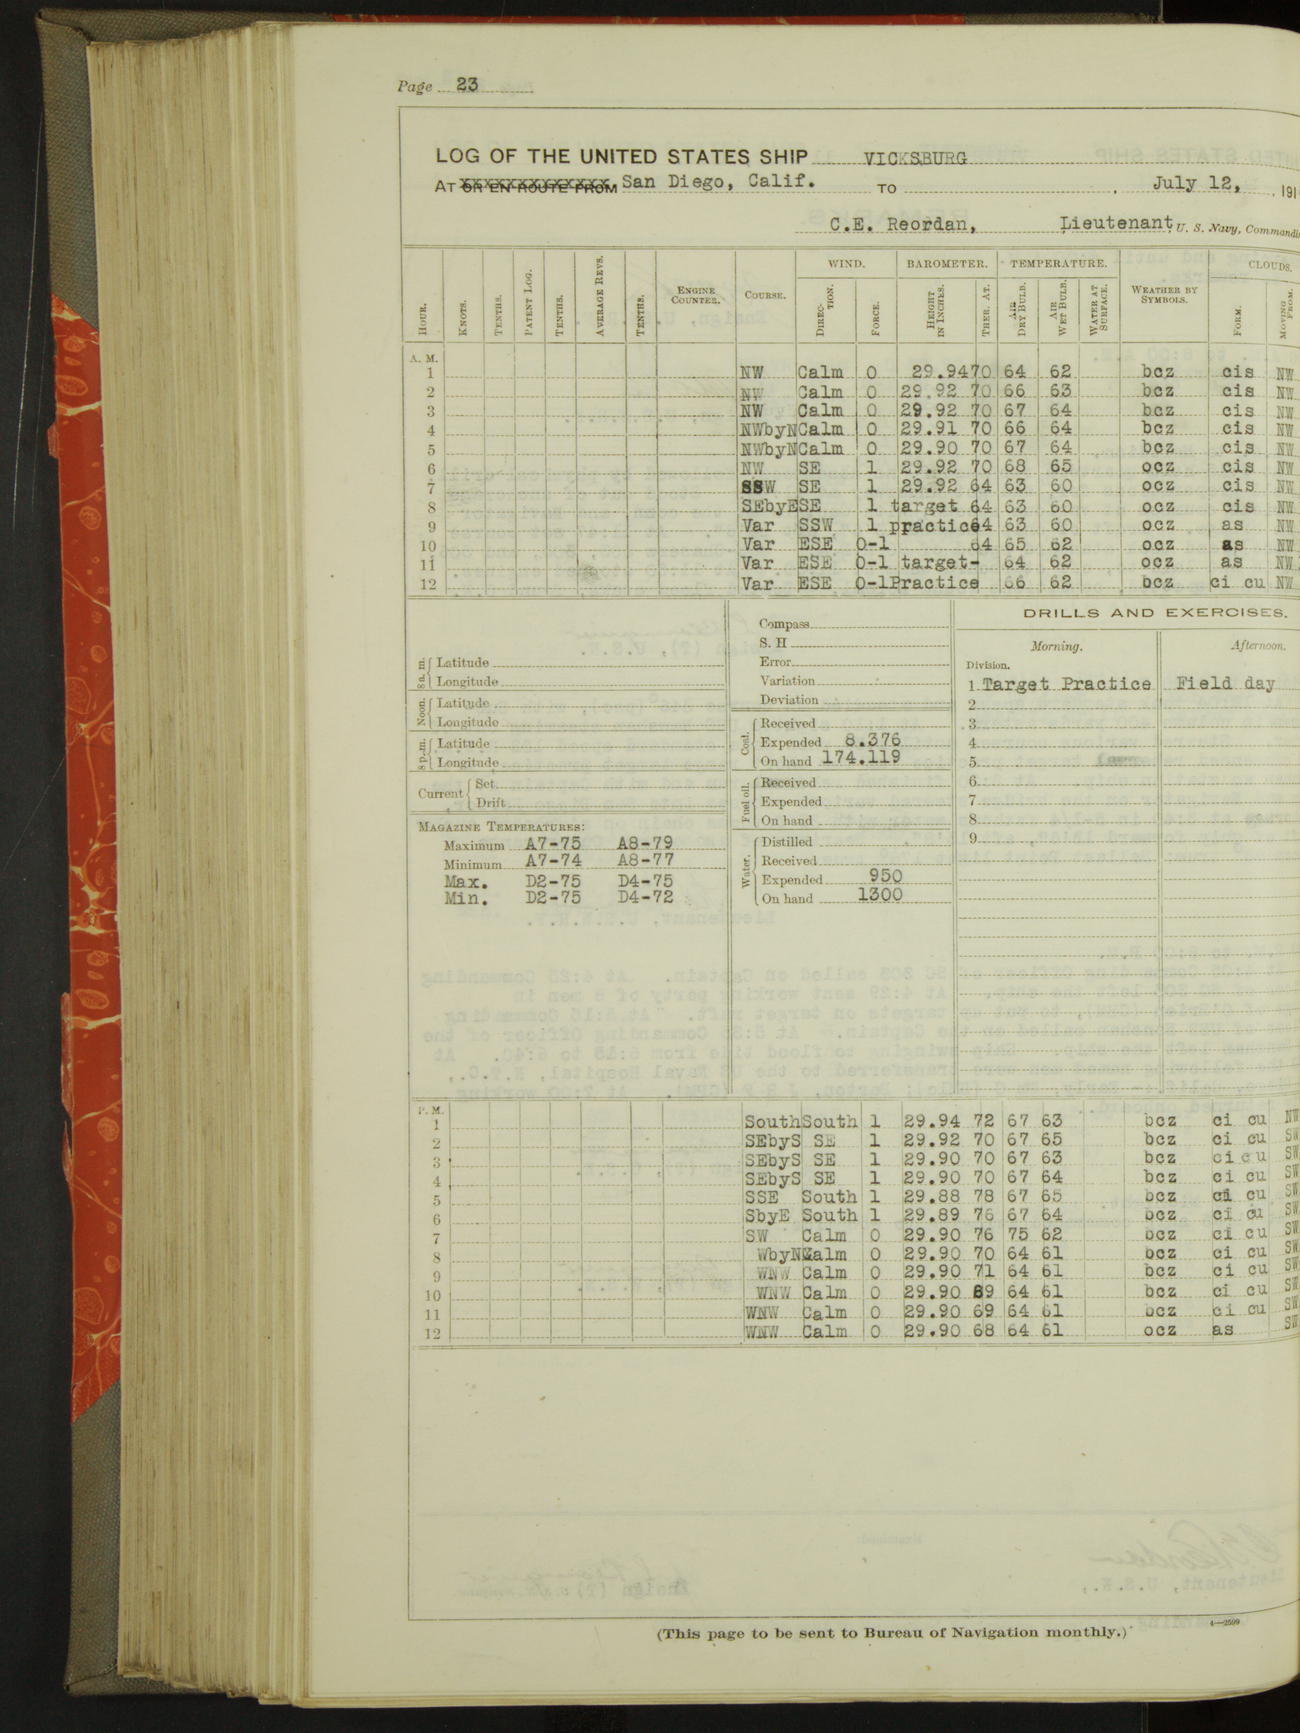 Page 23
LOG OF THE UNITED STATES SHIP VICKSBURG
AT OR EN ROUTE FROM San Diego, Calif. TO , July 12, , 191
C.E. Reordan, Lieutenant, U. S. Navy, Commandi
HOUR. KNOTS. TENTHS. PATENT LOG. TENTHS. AVERAGE REVS. TENTHS. ENGINE COUNTER. COURSE. WIND. DIRECTION. FORCE. BAROMETER. HEIGHT IN INCHES. THER. AT. TEMPERATURE. AIR DRY BULB. AIR WET BULB. WATER AT SURFACE. WEATHER BY SYMBOLS. CLOUDS. FORM. MOVING FROM.
A. M.
1 NW Calm 0 29.94 70 64 62 bcz cis NW
2 NW Calm 0 29.92 70 66 63 bcz cis NW
3 NW Calm 0 29.92 70 67 64 bcz cis NW
4 NWbyN Calm 0 29.91 70 66 64 bcz cis NW
5 NWbyN Calm 0 29.90 70 67 64 bcz cis NW
6 NW SE 1 29.92 70 68 65 ocz cis NW
7 SSW SE 1 29.92 64 63 60 ocz cis NW
8 SEbyE SE 1 target 64 63 60 ocz cis NW
9 Var SSW 1 practice 64 63 60 ocz as NW
10 Var ESE 0-1 64 65 62 ocz as NW
11 Var ESE 0-1 target- 64 62 ocz as NW
12 Var ESE 0-1 Practice 66 62 bcz ci cu NW
8 a.m. Latitude
Longitude
Noon. Latitude
Longitude
8 p.m. Latitude
Longitude
Current Set
Drift
MAGAZINE TEMPERATURES:
Maximum A7-75 A8-79
Minimum A7-74 A8-77
Max. D2-75 D4-75
Min. D2-75 D4-72
Compass
S. H
Error
Variation
Deviation
Coal. Received
Expended 8.376
On hand 174.119
Fuel oil. Received
Expended
On hand
Water. Distilled
Received
Expended 950
On hand 1300
DRILLS AND EXERCISES.
Morning. Afternoon.
Division.
1 Target Practice Field day
2
3
4
5
6
7
8
9
P. M.
1 South South 1 29.94 72 67 63 bcz ci cu NW
2 SEbyS SE 1 29.92 70 67 65 bcz ci cu SW
3 SEbyS SE 1 29.90 70 67 63 bcz ci cu SW
4 SEbyS SE 1 29.90 70 67 64 bcz ci cu SW
5 SSE South 1 29.88 78 67 65 bcz ci cu SW
6 SbyE South 1 29.89 76 67 64 bcz ci cu SW
7 SW Calm 0 29.90 76 75 62 bcz ci cu SW
8 WbyN Calm 0 29.90 70 64 61 bcz ci cu SW
9 WNW Calm 0 29.90 71 64 61 bcz ci cu SW
10 WNW Calm 0 29.90 69 64 61 bcz ci cu SW
11 WNW Calm 0 29.90 69 64 61 bcz ci cu SW
12 WNW Calm 0 29.90 68 64 61 ocz as SW
4—2599
(This page to be sent to Bureau of Navigation monthly.)